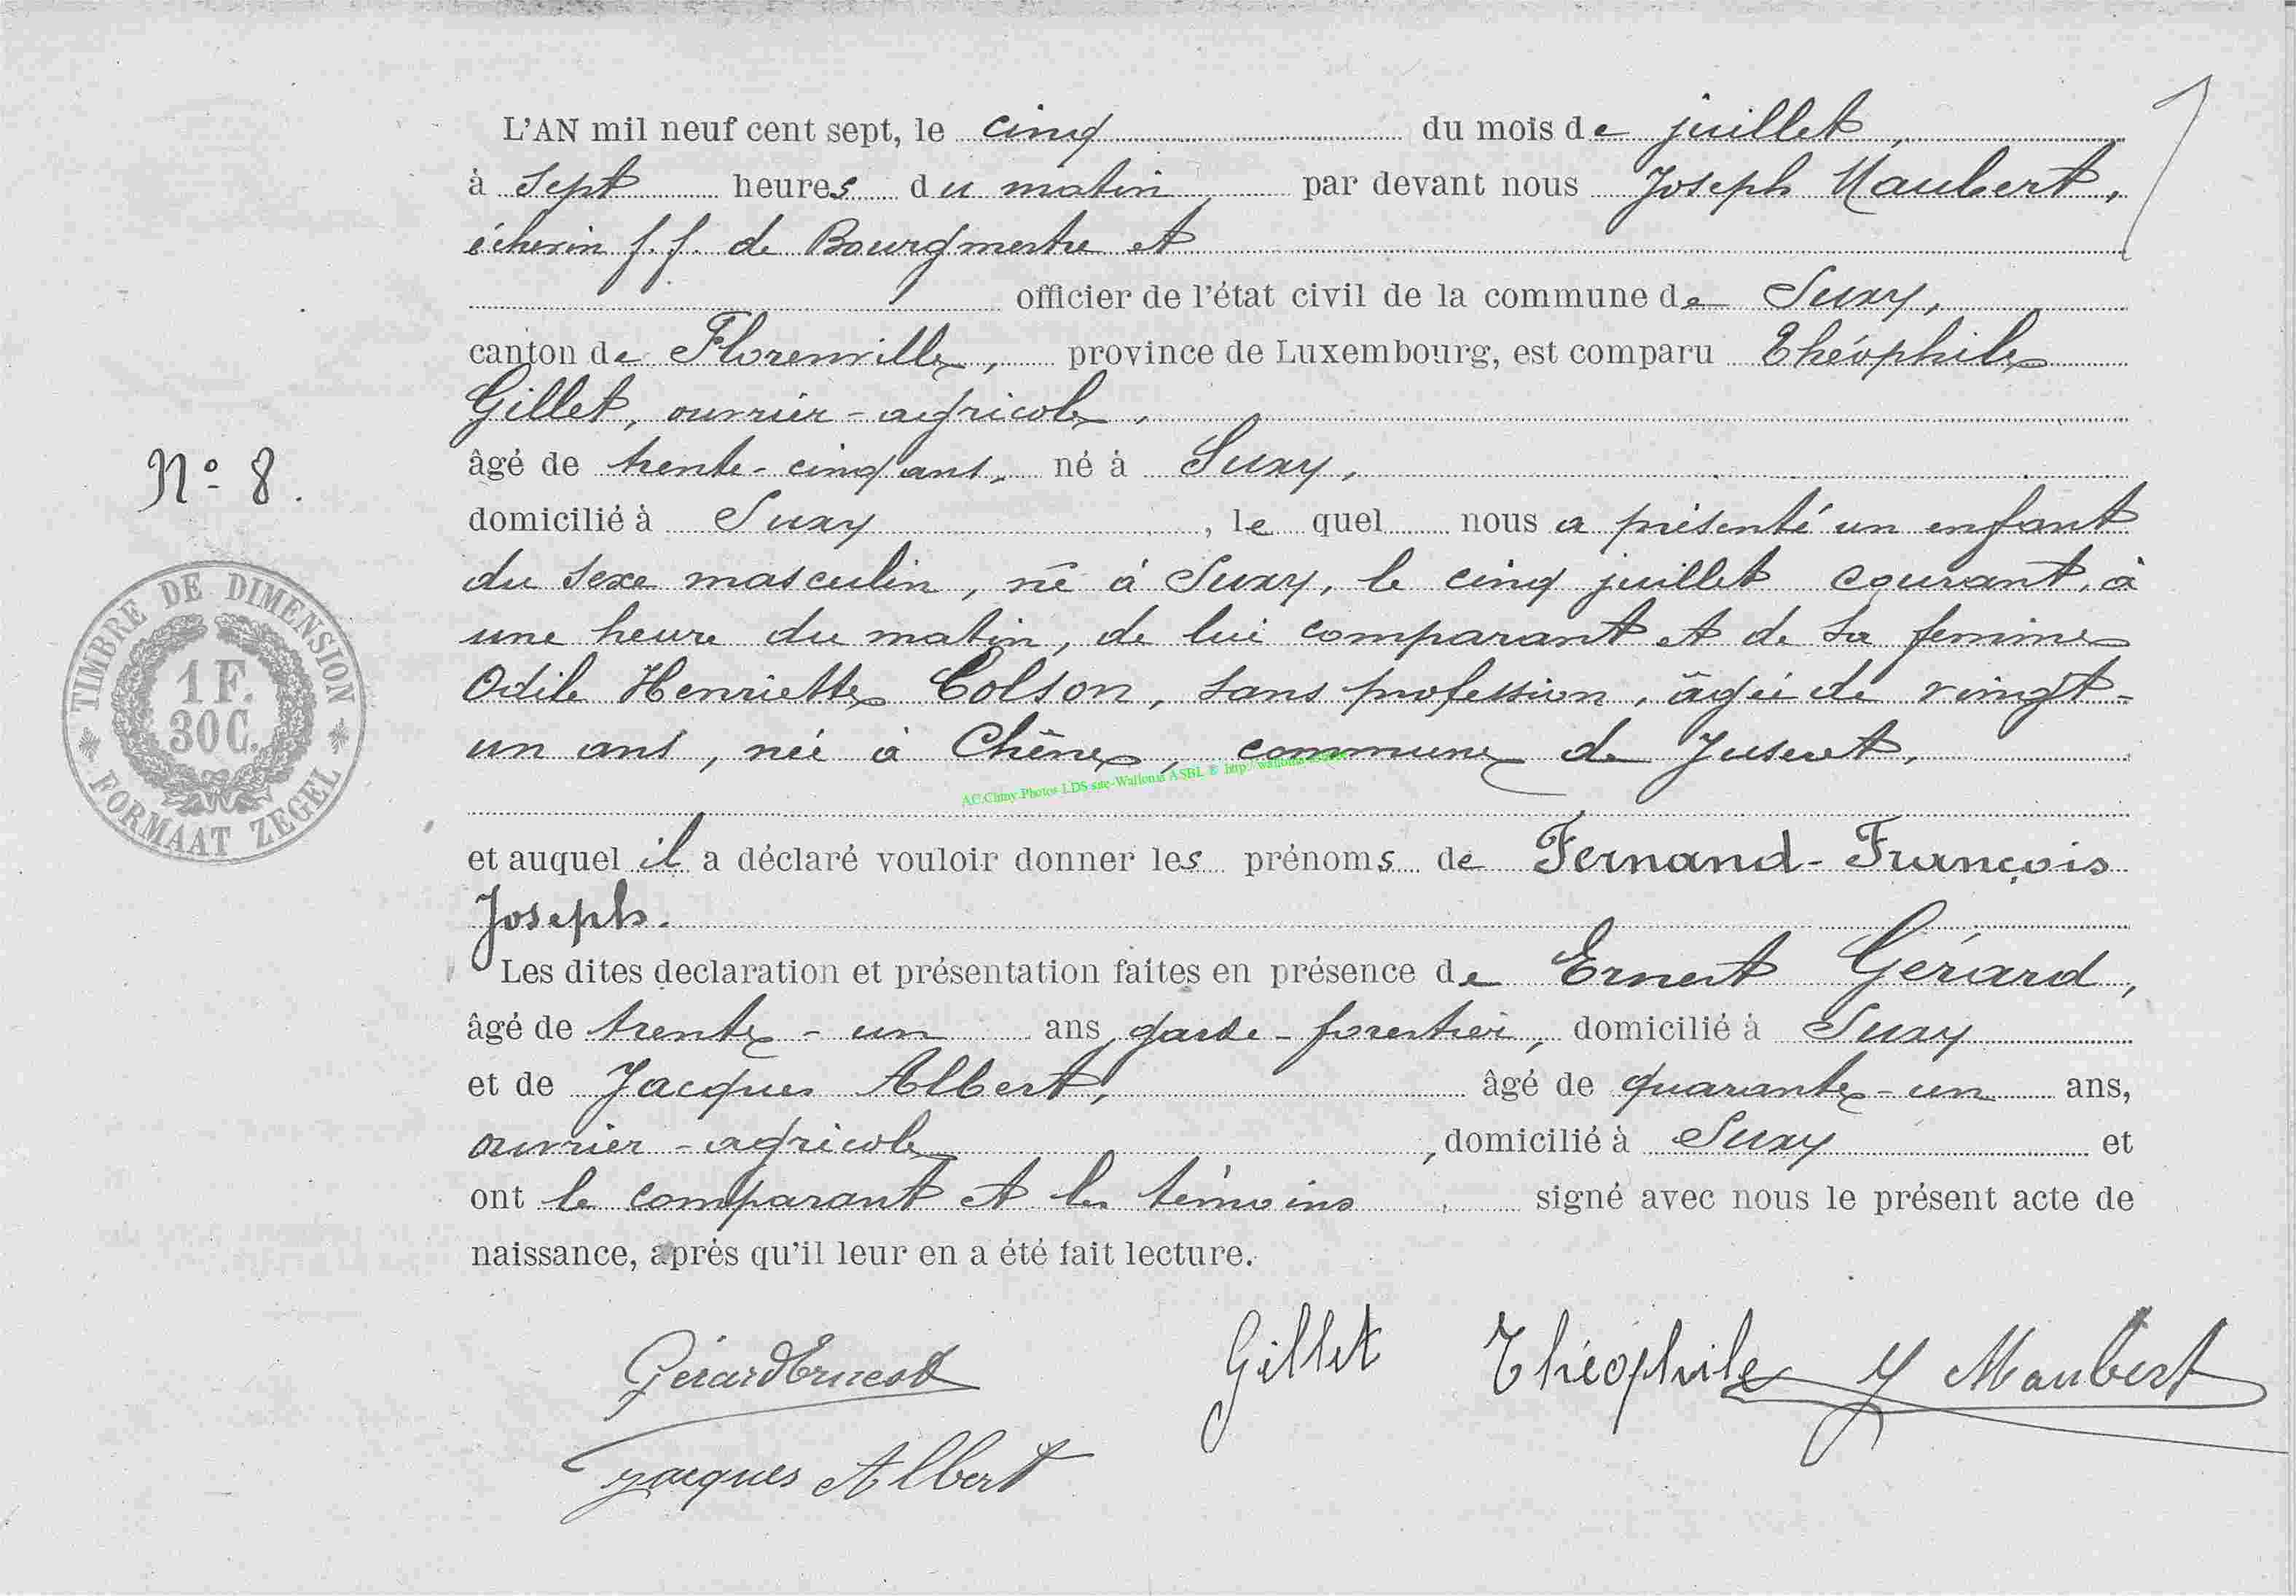 L'AN mil neuf cent sept, le cinq du mois de juillet,
à sept heures du matin par devant nous Joseph Maubert,
échevin f.f. de Bourgmestre et
officier de l'état civil de la commune de Suxy,
canton de Florenville, province de Luxembourg, est comparu Théophile
Gillet, ouvrier-agricole,
âgé de trente-cinq ans, né à Suxy,
N° 8.
domicilié à Suxy, le quel nous a présenté un enfant
du sexe masculin, né à Suxy, le cinq juillet courant, à
une heure du matin, de lui comparant et de sa femme
Odile Henriette Colson, sans profession, âgée de vingt-
un ans, née à Chêne, commune de Juseret,
TIMBRE DE DIMENSION
1 F.
30 C.
FORMAAT ZEGEL
AC.Chiny.Photos LDS site-Wallonia ASBL © http:
et auquel il a déclaré vouloir donner les prénoms de Fernand-François
Joseph.
Les dites declaration et présentation faites en présence de Ernest Gérard,
âgé de trente-un ans, garde-forestier, domicilié à Suxy
et de Jacques Albert, âgé de quarante-un ans,
ouvrier-agricole, domicilié à Suxy et
ont le comparant et les témoins signé avec nous le présent acte de
naissance, après qu'il leur en a été fait lecture.
Gérard Ernest Gillet Théophile J Maubert
Jacques Albert